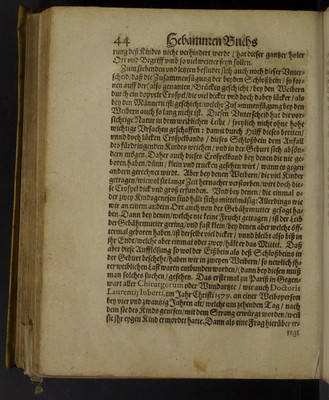 44 Hebammen Buchs
rung deß Kindes nicht verhindert werde / hat dieser gantzer holer
Ort vnd Begriff vnd so viel weiter seyn sollen.
Zum siebenden vnd letzten befindet sich auch noch dieser Vnter-
scheid / daß die Zusammenfügung der beyden Schloßbein / so for-
nen auff der (also genanten) Brücken geschicht / bey den Weibern
durch ein doppele Crospel / die viel dicker vnd doch dabey lücker / als
bey den Männern ist / geschicht: welche Zusammenfügung bey den
Weibern auch so lang nicht ist. Diesen Vnterscheid hat die vor-
sichtige Natur in dem weiblichen Leibe / freylich nicht ohne hohe
wichtige Vrsachen geschaffen: damit durch Hülff dieses breiten /
vnnd doch lücken Crospelbands / dieses Schloßbein dem Anfall
des fürdringenden Kindes weichen / vnd in der Geburt sich absön-
dern mögen. Daher auch dieses Crospelband bey denen die nie ge-
boren haben / dünn / klein vnd trucken gesehen wirt / wann es gegen
andern gerechnet wirdt. Aber bey denen Weibern / die viel Kinder
getragen / wiewol sie langer Zeit hernacher verstorben / wirt doch die-
se Crospel dick vnd groß erfunden. Vnd bey denen / die einmal o-
der zwey Kindes genesen sind hält sichs mittelmässig: Allerdings wie
wir an einem andern Ort auch von der Gebährmutter gesagt ha-
ben. Dann bey denen / welche nie keine Frucht getragen / ist der Leib
der Gebährmutter gering / vnd fast klein / bey denen aber welche öff-
termal geboren haben / ist derselbe viel dicker / vnnd bleibt also biß in
ihr Ende / welche aber einmal oder zwey / hält er das Mittel. Daß
aber diese Aufflösung so wol der Eißbein als deß Schloßbeins in
der Geburt beschehe / haben wir in zweyen Weibern / so newlich ih-
rer weiblichen Last waren entbunden worden / dann bey diesen muß
man solches suchen / gesehen. Das erstemal zu Pariß in Gegen-
wart aller Chirurgorum oder Wundartzte / wie auch Doctoris
Laurentij Iuberti, im Jahr Christi 1579. an einer Weibsperson
bey vier vnd zwantzig Jahren alt / welche am zehenden Tag / nach
dem sie des Kinds genesen / mit dem Strang erwürgt worden / weil
sie ihr eygen Kind ermordet hatte. Dann als eine Frag hierüber er-
regt